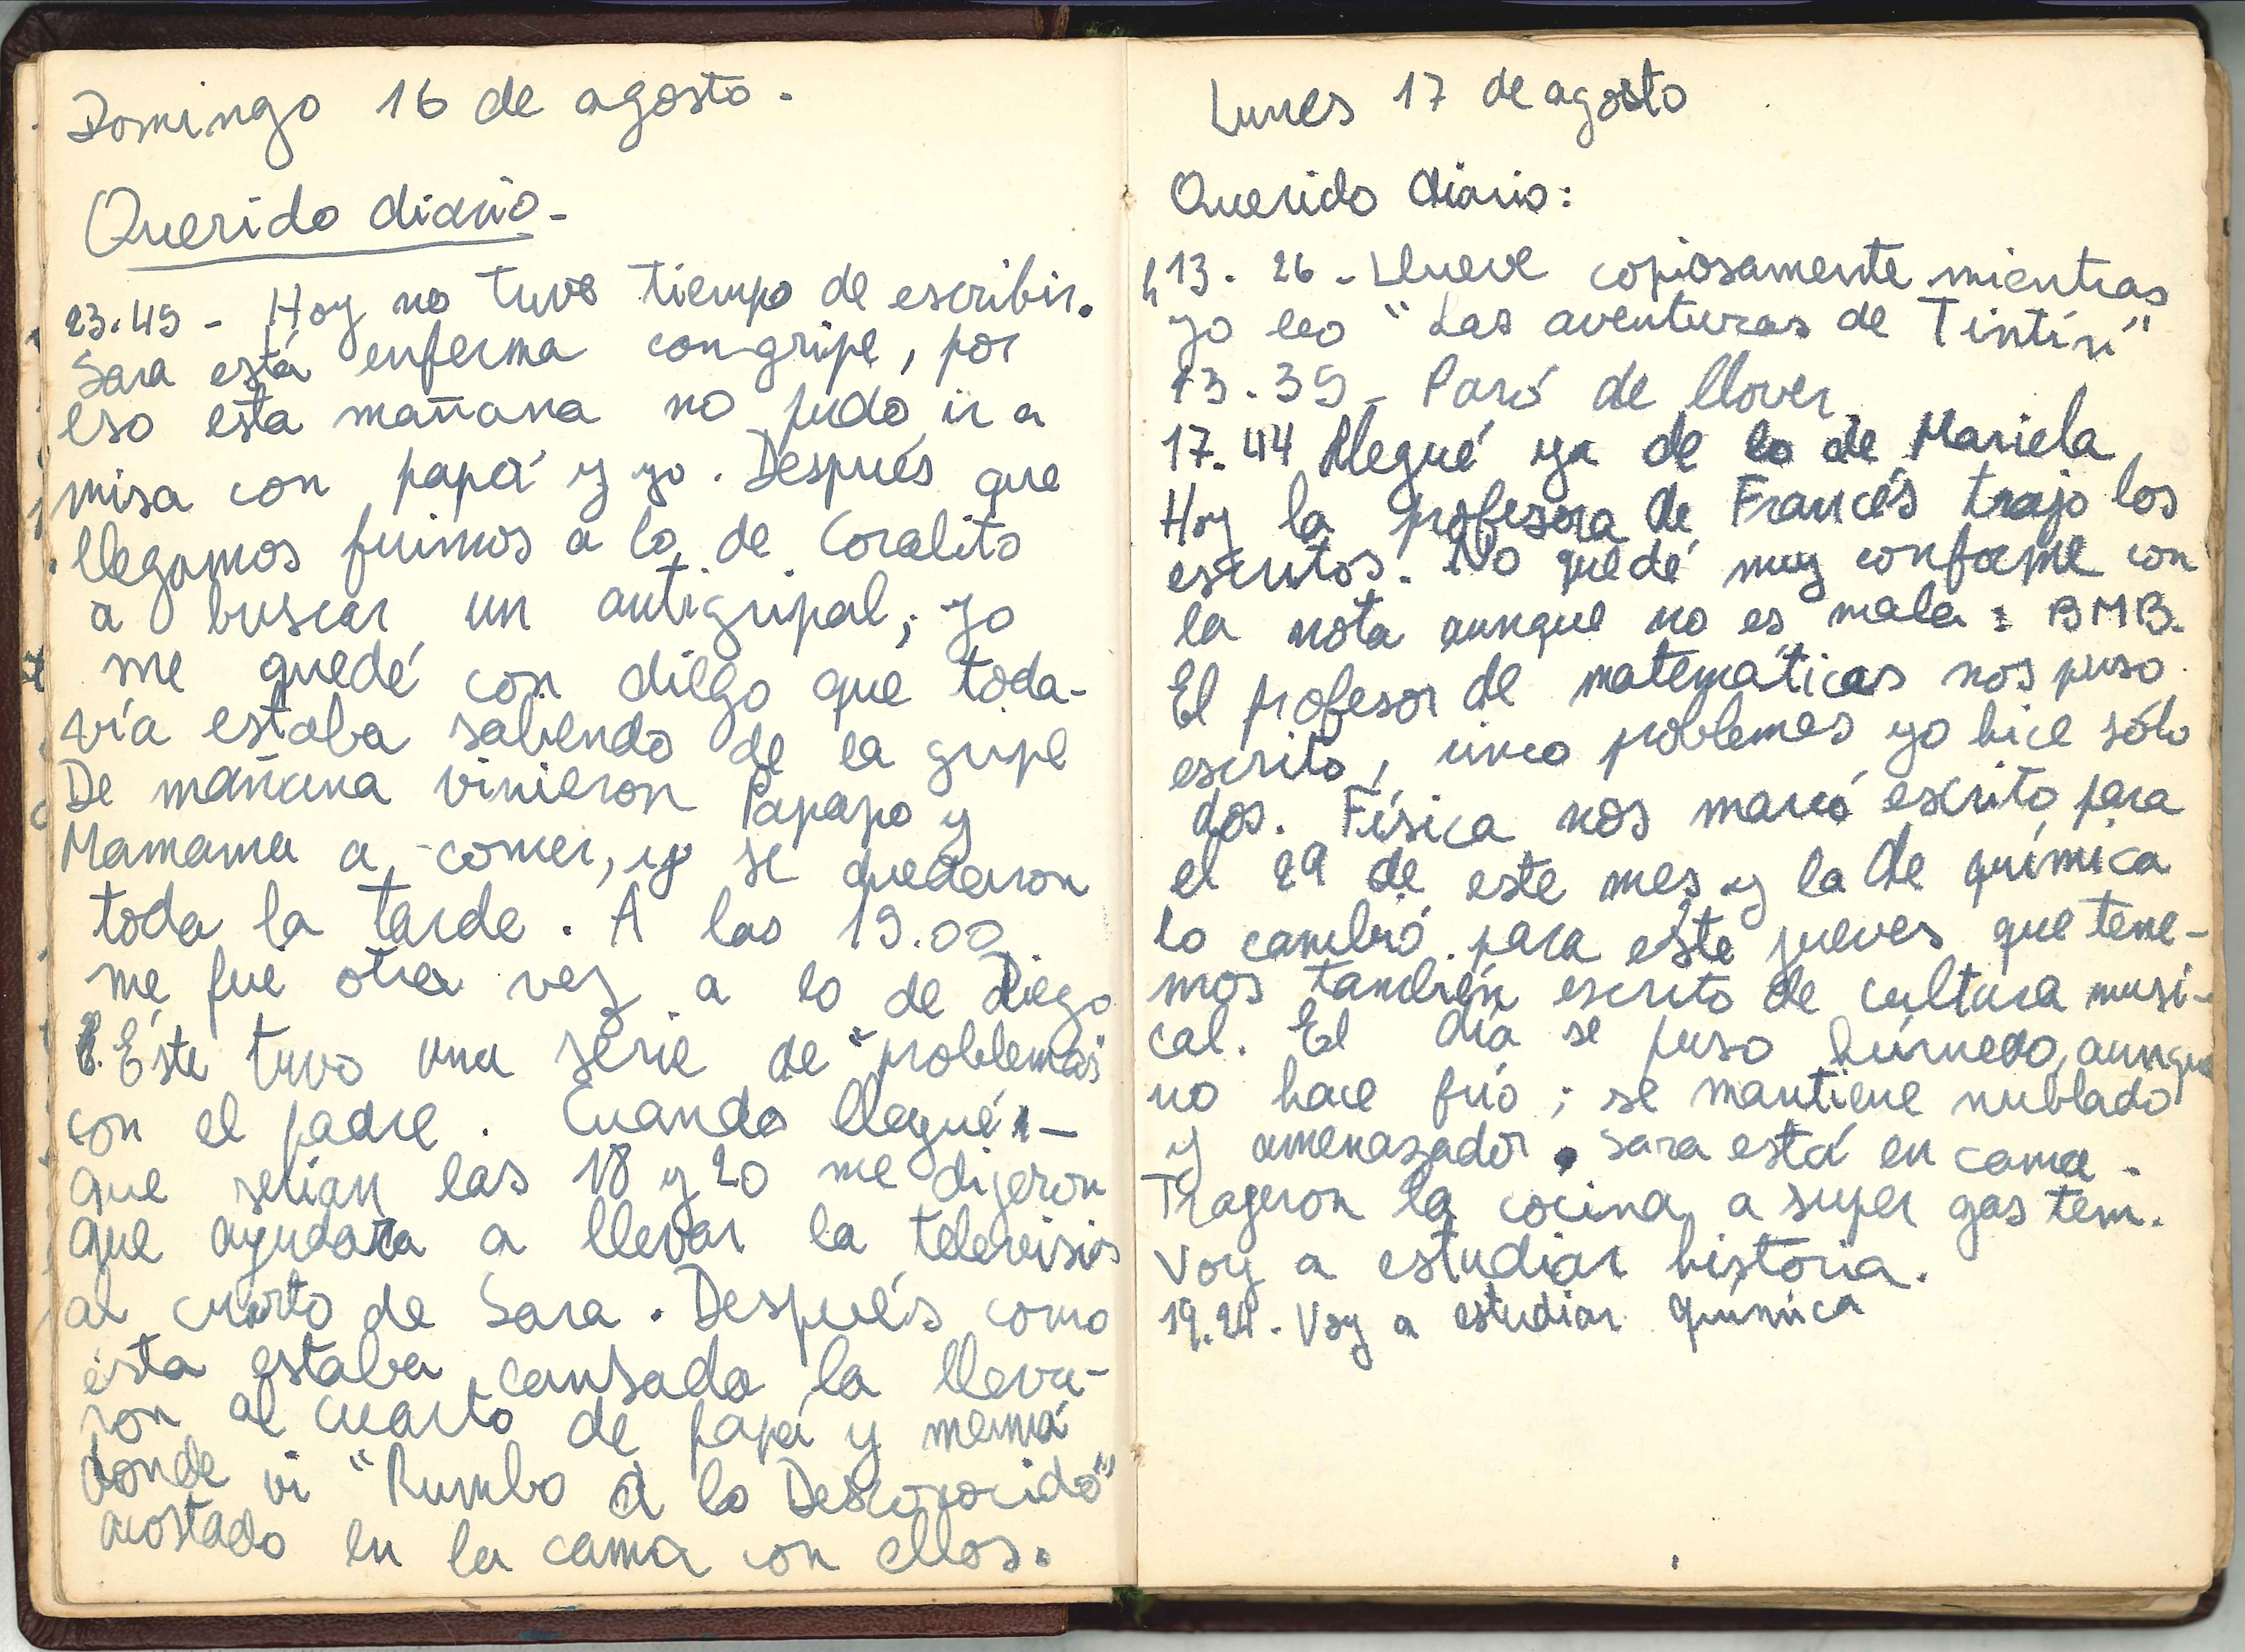 Domingo 16 de agosto.
Querido diario-
23.45 - Hoy no tuve tiempo de escribir.
Sara está enferma con gripe, por
eso esta mañana no pudo ir a
misa con papá y yo. Después que
llegamos fuimos a lo de Coralito
a buscar un antigripal; yo
me quedé con diego que toda-
vía estaba saliendo de la gripe
De mañana vinieron Papapo y
Mamama a comer, y se quedaron
toda la tarde. A las 19.00
me fui otra vez a lo de Diego
Éste tuvo una serie de "problemas"
con el padre. Cuando llegué -
que serian las 18 y 20 me dijeron
que ayudara a llevar la television
al curto de Sara. Después como
ésta estaba cansada la lleva-
ron al cuarto de papá y mamá
donde vi "Rumbo a lo Desconocido"
acostado en la cama con ellos.
Lunes 17 de agosto
Querido diario:
h 13. 26 - Llueve copiosamente mientras
yo leo "Las aventuras de Tintín"
13.35 - Paró de llover.
17.44 Llegué ya de lo de Mariela
Hoy la profesora de Francés trajo los
escritos. No quedé muy conforme con
la nota aunque no es mala: BMB.
El profesor de matemáticas nos puso
escrito, cinco problemas yo hice sólo
dos. Física nos marcó escrito para
el 29 de este mes y la de química
lo cambió para este jueves que tene-
mos también escrito de cultura musi-
cal. El día se puso húmedo, aunque
no hace frío; se mantiene nublado
y amenazador. Sara está en cama.
Trageron la cocina a super gas tem.
Voy a estudiar historia.
19.24. Voy a estudiar química